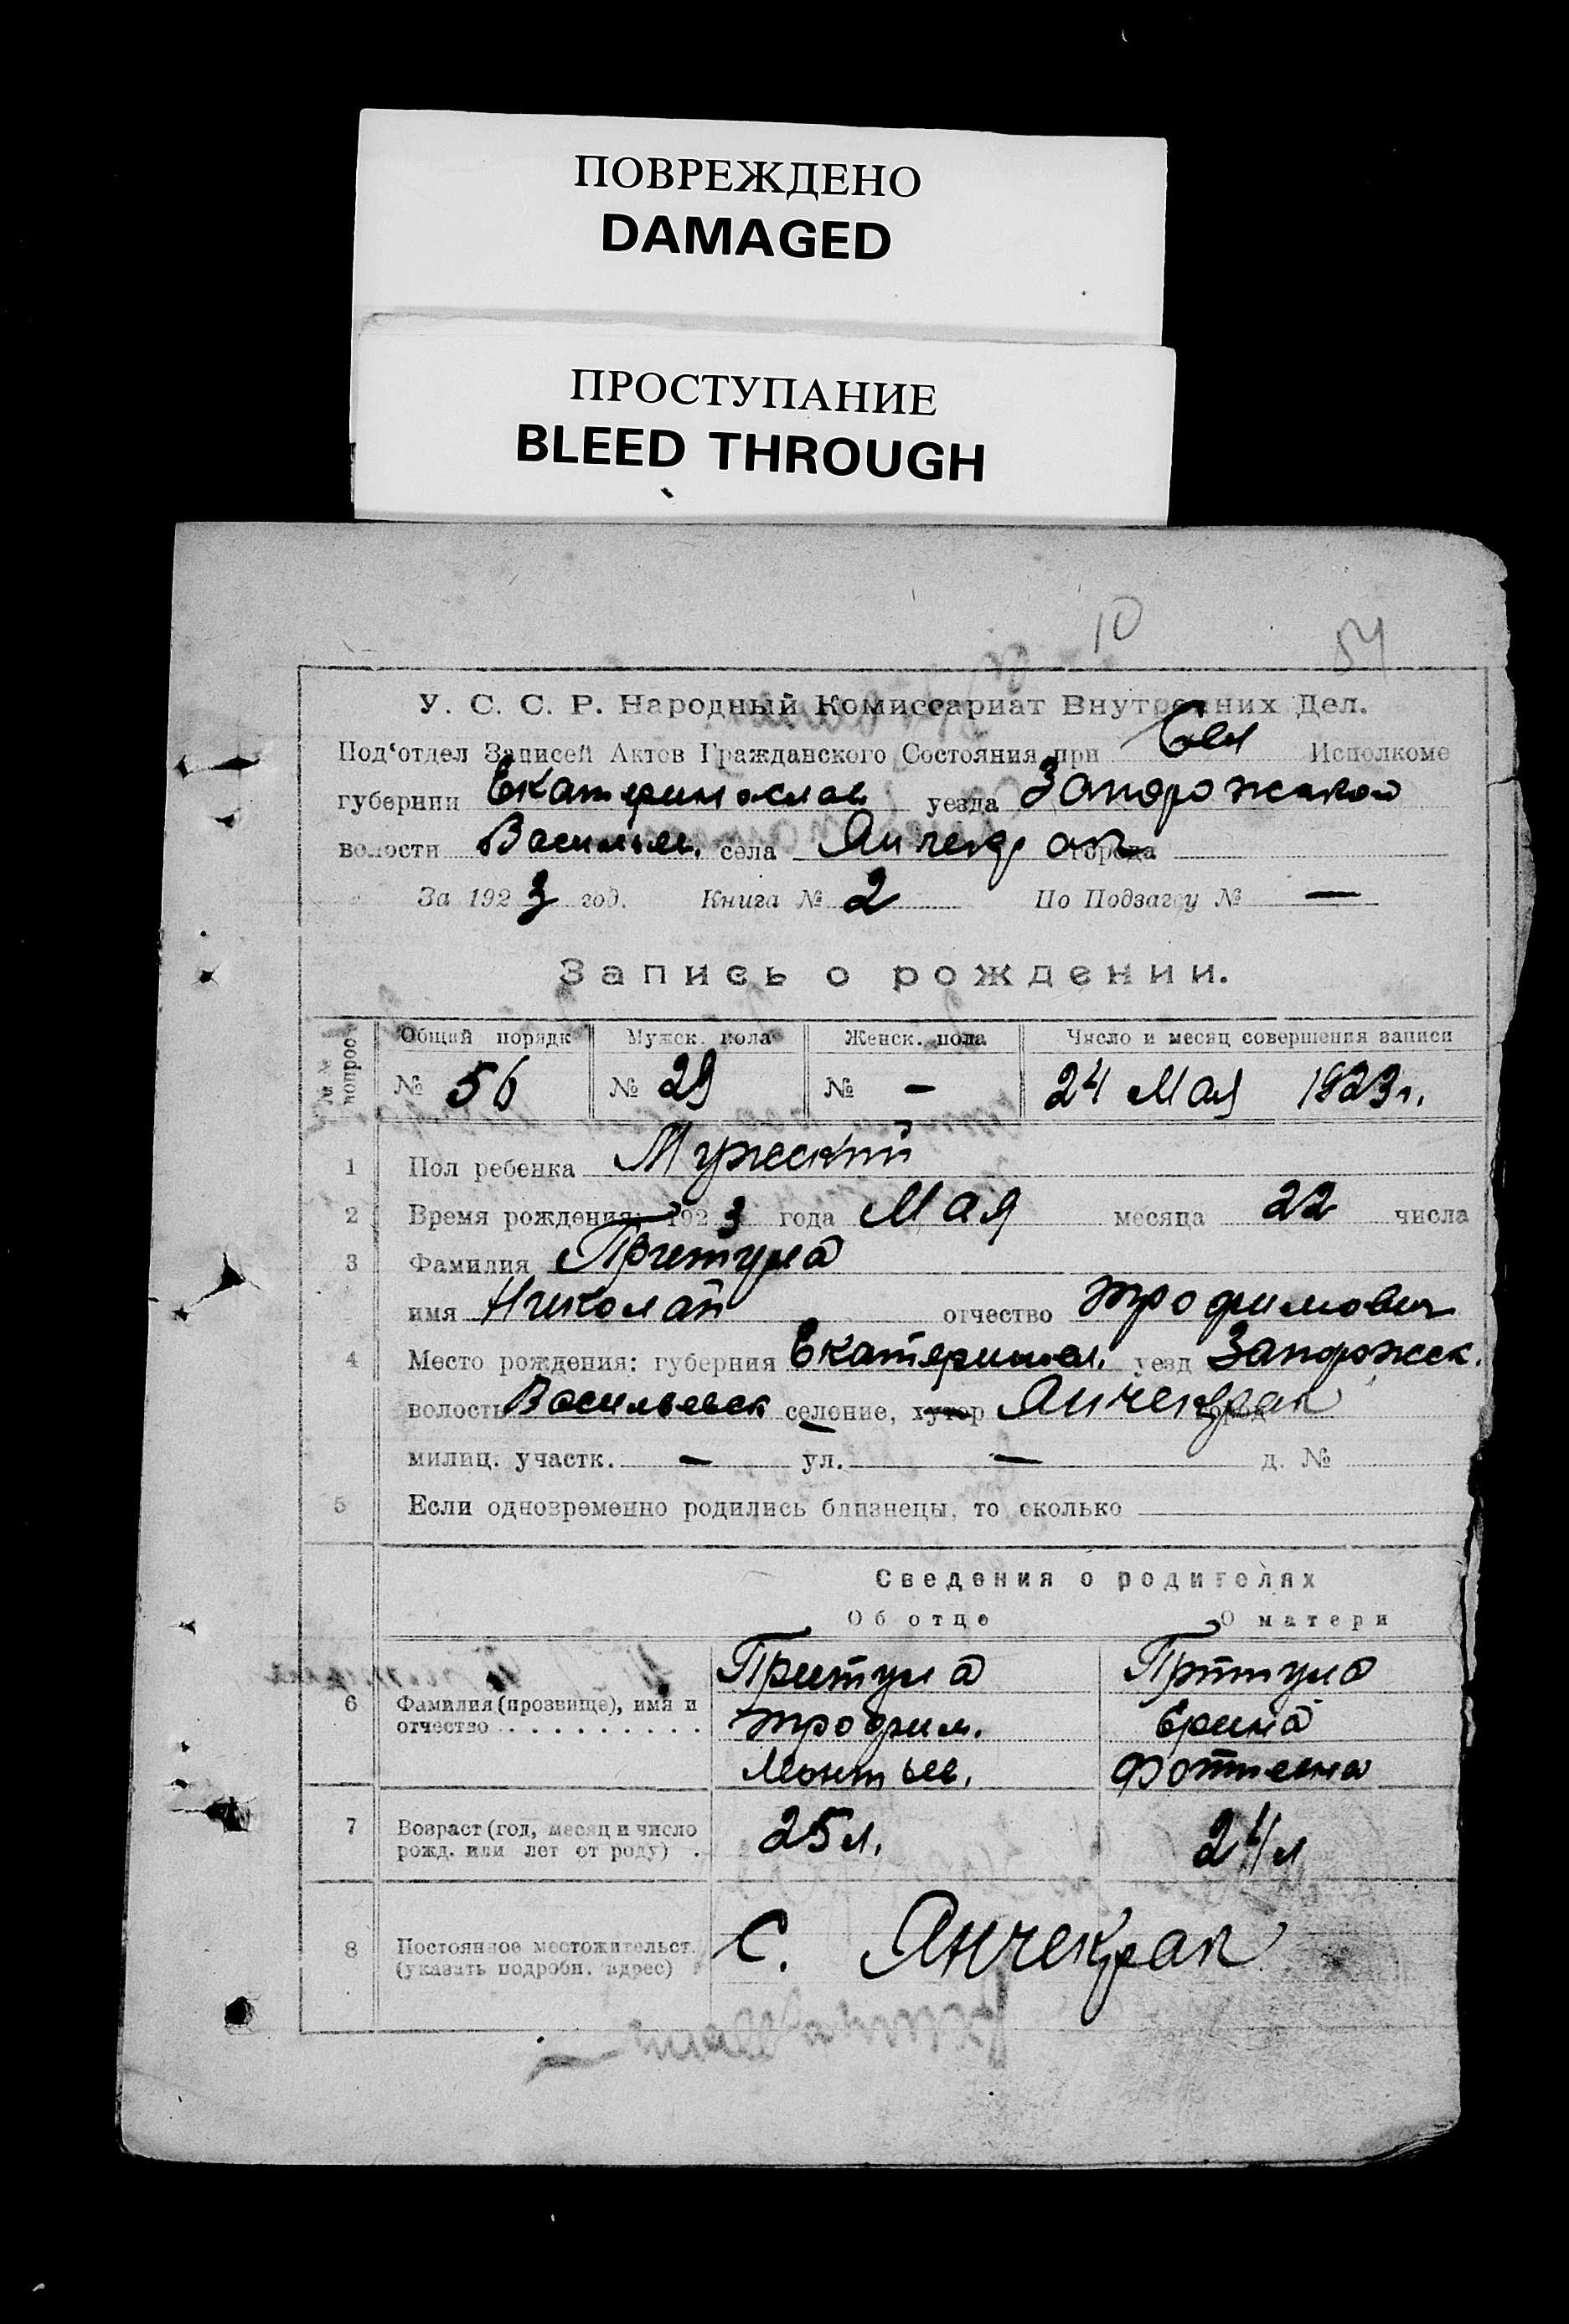 ПОВРЕЖДЕНО
DAMAGED
ПРОСТУПАНИЕ
BLEED THROUGH
10 54
У. С. С. Р. Народный Комиссариат Внутренних Дел.
Под‘отдел Записей Актов Гражданского Состояния при Сел Исполкоме
губернии Екатеринослав уезда Запорожской
волости Васильев. села Янчекрак города
За 1923 год. Книга № 2 По Подзагсу № —
Запись о рождении.
№ № вопрос. Общий порядк Мужск. пола Женск. пола Число и месяц совершения записи
№ 56 № 29 № — 24 Мая 1923 г.
1 Пол ребенка Мужеский
2 Время рождения: 1923 года Мая месяца 22 числа
3 Фамилия Притула
имя Николай отчество Трофимович
4 Место рождения: губерния Екатериносл. уезд Запорожск.
волость Васильевск селение, хутор Янчекрак город
милиц. участк. — ул. — д. №
5 Если одновременно родились близнецы, то сколько
Сведения о родителях
Об отце О матери
Притула Притула
6 Фамилия (прозвище), имя и
отчество Трофим. Ерина
Леонтьев. Фотиевна
7 Возраст (год, месяц и число
рожд. или лет от роду) 25 л. 24 л
8 Постоянное местожительст.
(указать подробн. адрес) С. Янчекрак